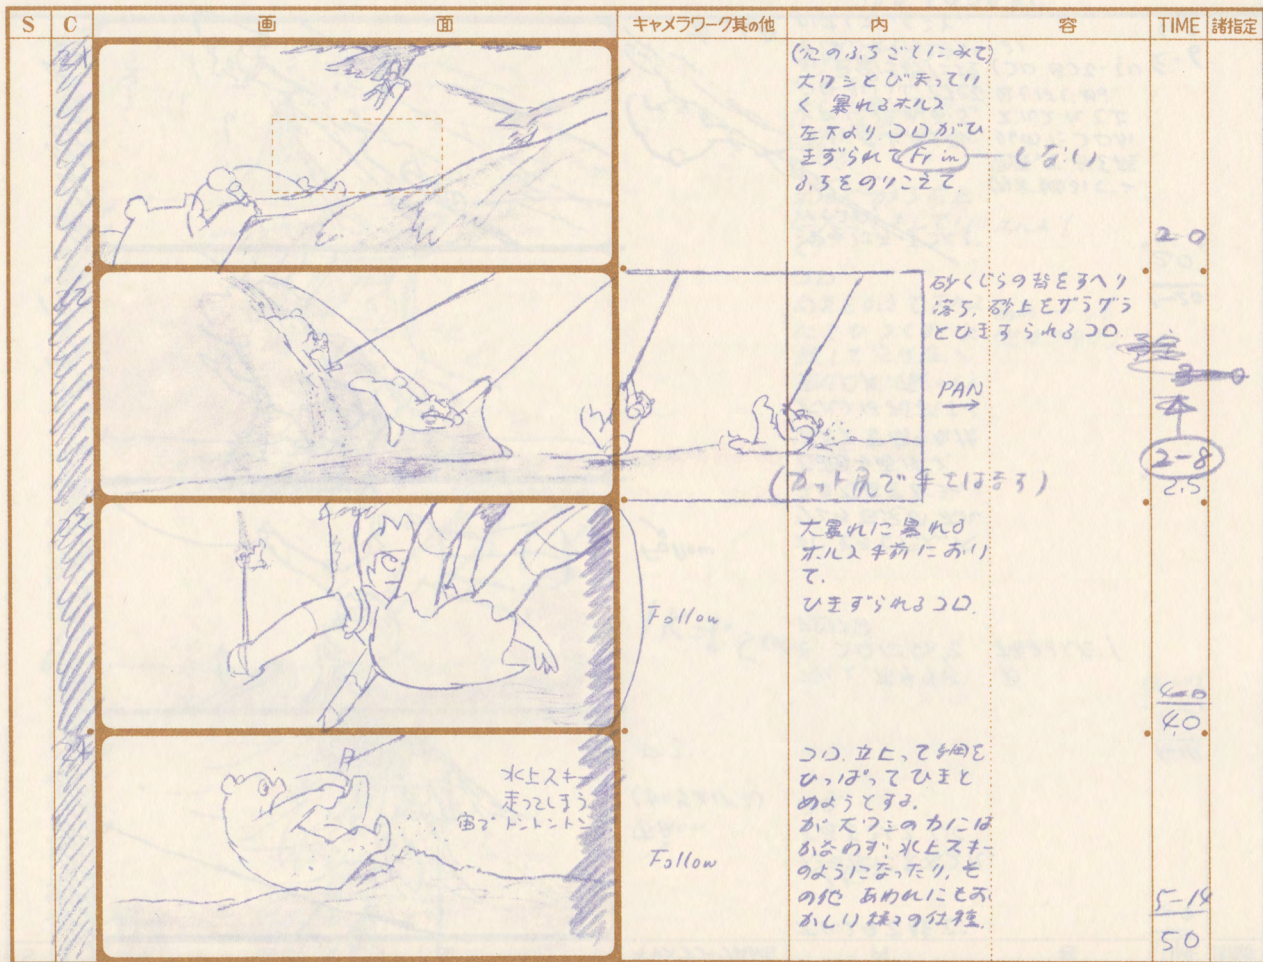 S C 画 面 キャメラワーク其の他 内 容 TIME 諸指定
21
(穴のふちごとにみて)
大ワシとびまってい
く 暴れるホルス
左下より コロがひ
きずられて Fr in しない
ふちをのりこえて
2-0
22
砂くじらの背をすべり
落ち、砂上をザラザラ
とひきずられるコロ.
PAN
(カット尻で手ではなす)
3-0
2-8
2.5
23
Follow
大暴れに暴れる
ホルス手前におい
て.
ひきずられるコロ.
4-0
4.0
24
水上スキー
走ってしまう
宙で トントントン
Follow
コロ. 立上って綱を
ひっぱってひきと
めようとする.
が大ワシの力には
かなわず. 水上スキー
のようになったり、そ
の他 あわれにもお
かしい様々の仕種.
5-14
5.0